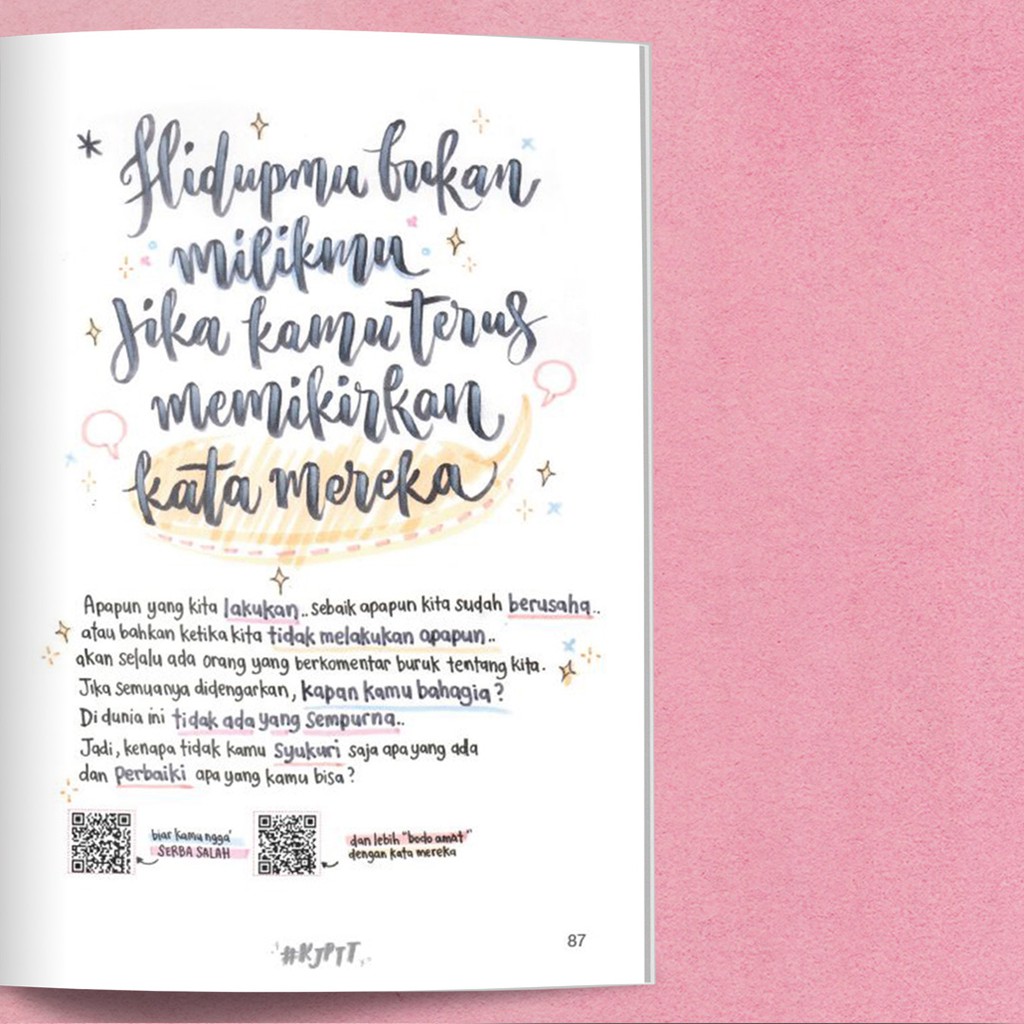 * Hidupmu bukan
milikmu
Jika kamu terus
memikirkan
kata mereka
Apapun yang kita lakukan.. sebaik apapun kita sudah berusaha..
atau bahkan ketika kita tidak melakukan apapun..
akan selalu ada orang yang berkomentar buruk tentang kita.
Jika semuanya didengarkan, kapan kamu bahagia?
Di dunia ini tidak ada yang sempurna..
Jadi, kenapa tidak kamu syukuri saja apa yang ada
dan perbaiki apa yang kamu bisa?
biar kamu ngga'
SERBA SALAH
dan lebih "bodo amat"
dengan kata mereka
#KJPTT
87